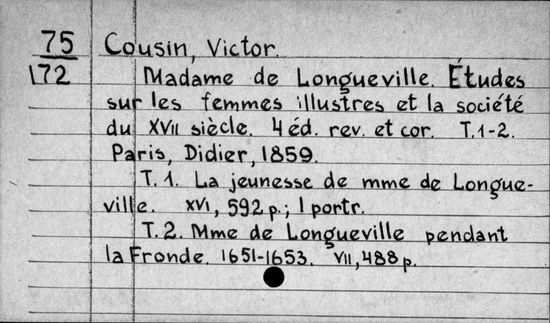 75 Cousin, Victor.
172 Madame de Longueville. Études
sur les femmes illustres et la société
du XVII siècle. 4 éd. rev. et cor. T.1-2.
Paris, Didier, 1859.
T. 1. La jeunesse de mme de Longue-
ville. XVI, 592 p.; 1 portr.
T. 2. Mme de Longueville pendant
la Fronde. 1651-1653. VII, 488 p.